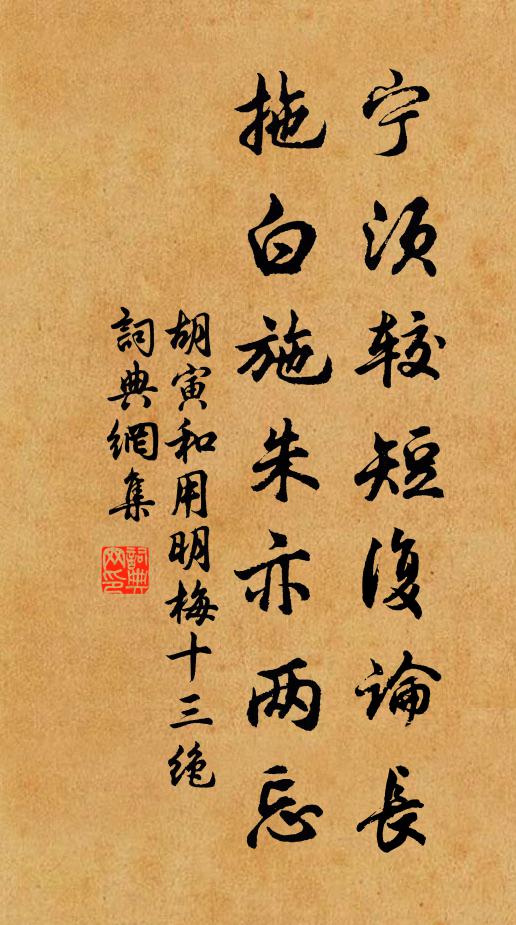 宁须较短復論長
拖白施朱亦两忘
胡寅和用明梅十三绝
詞典網集
詞典网印